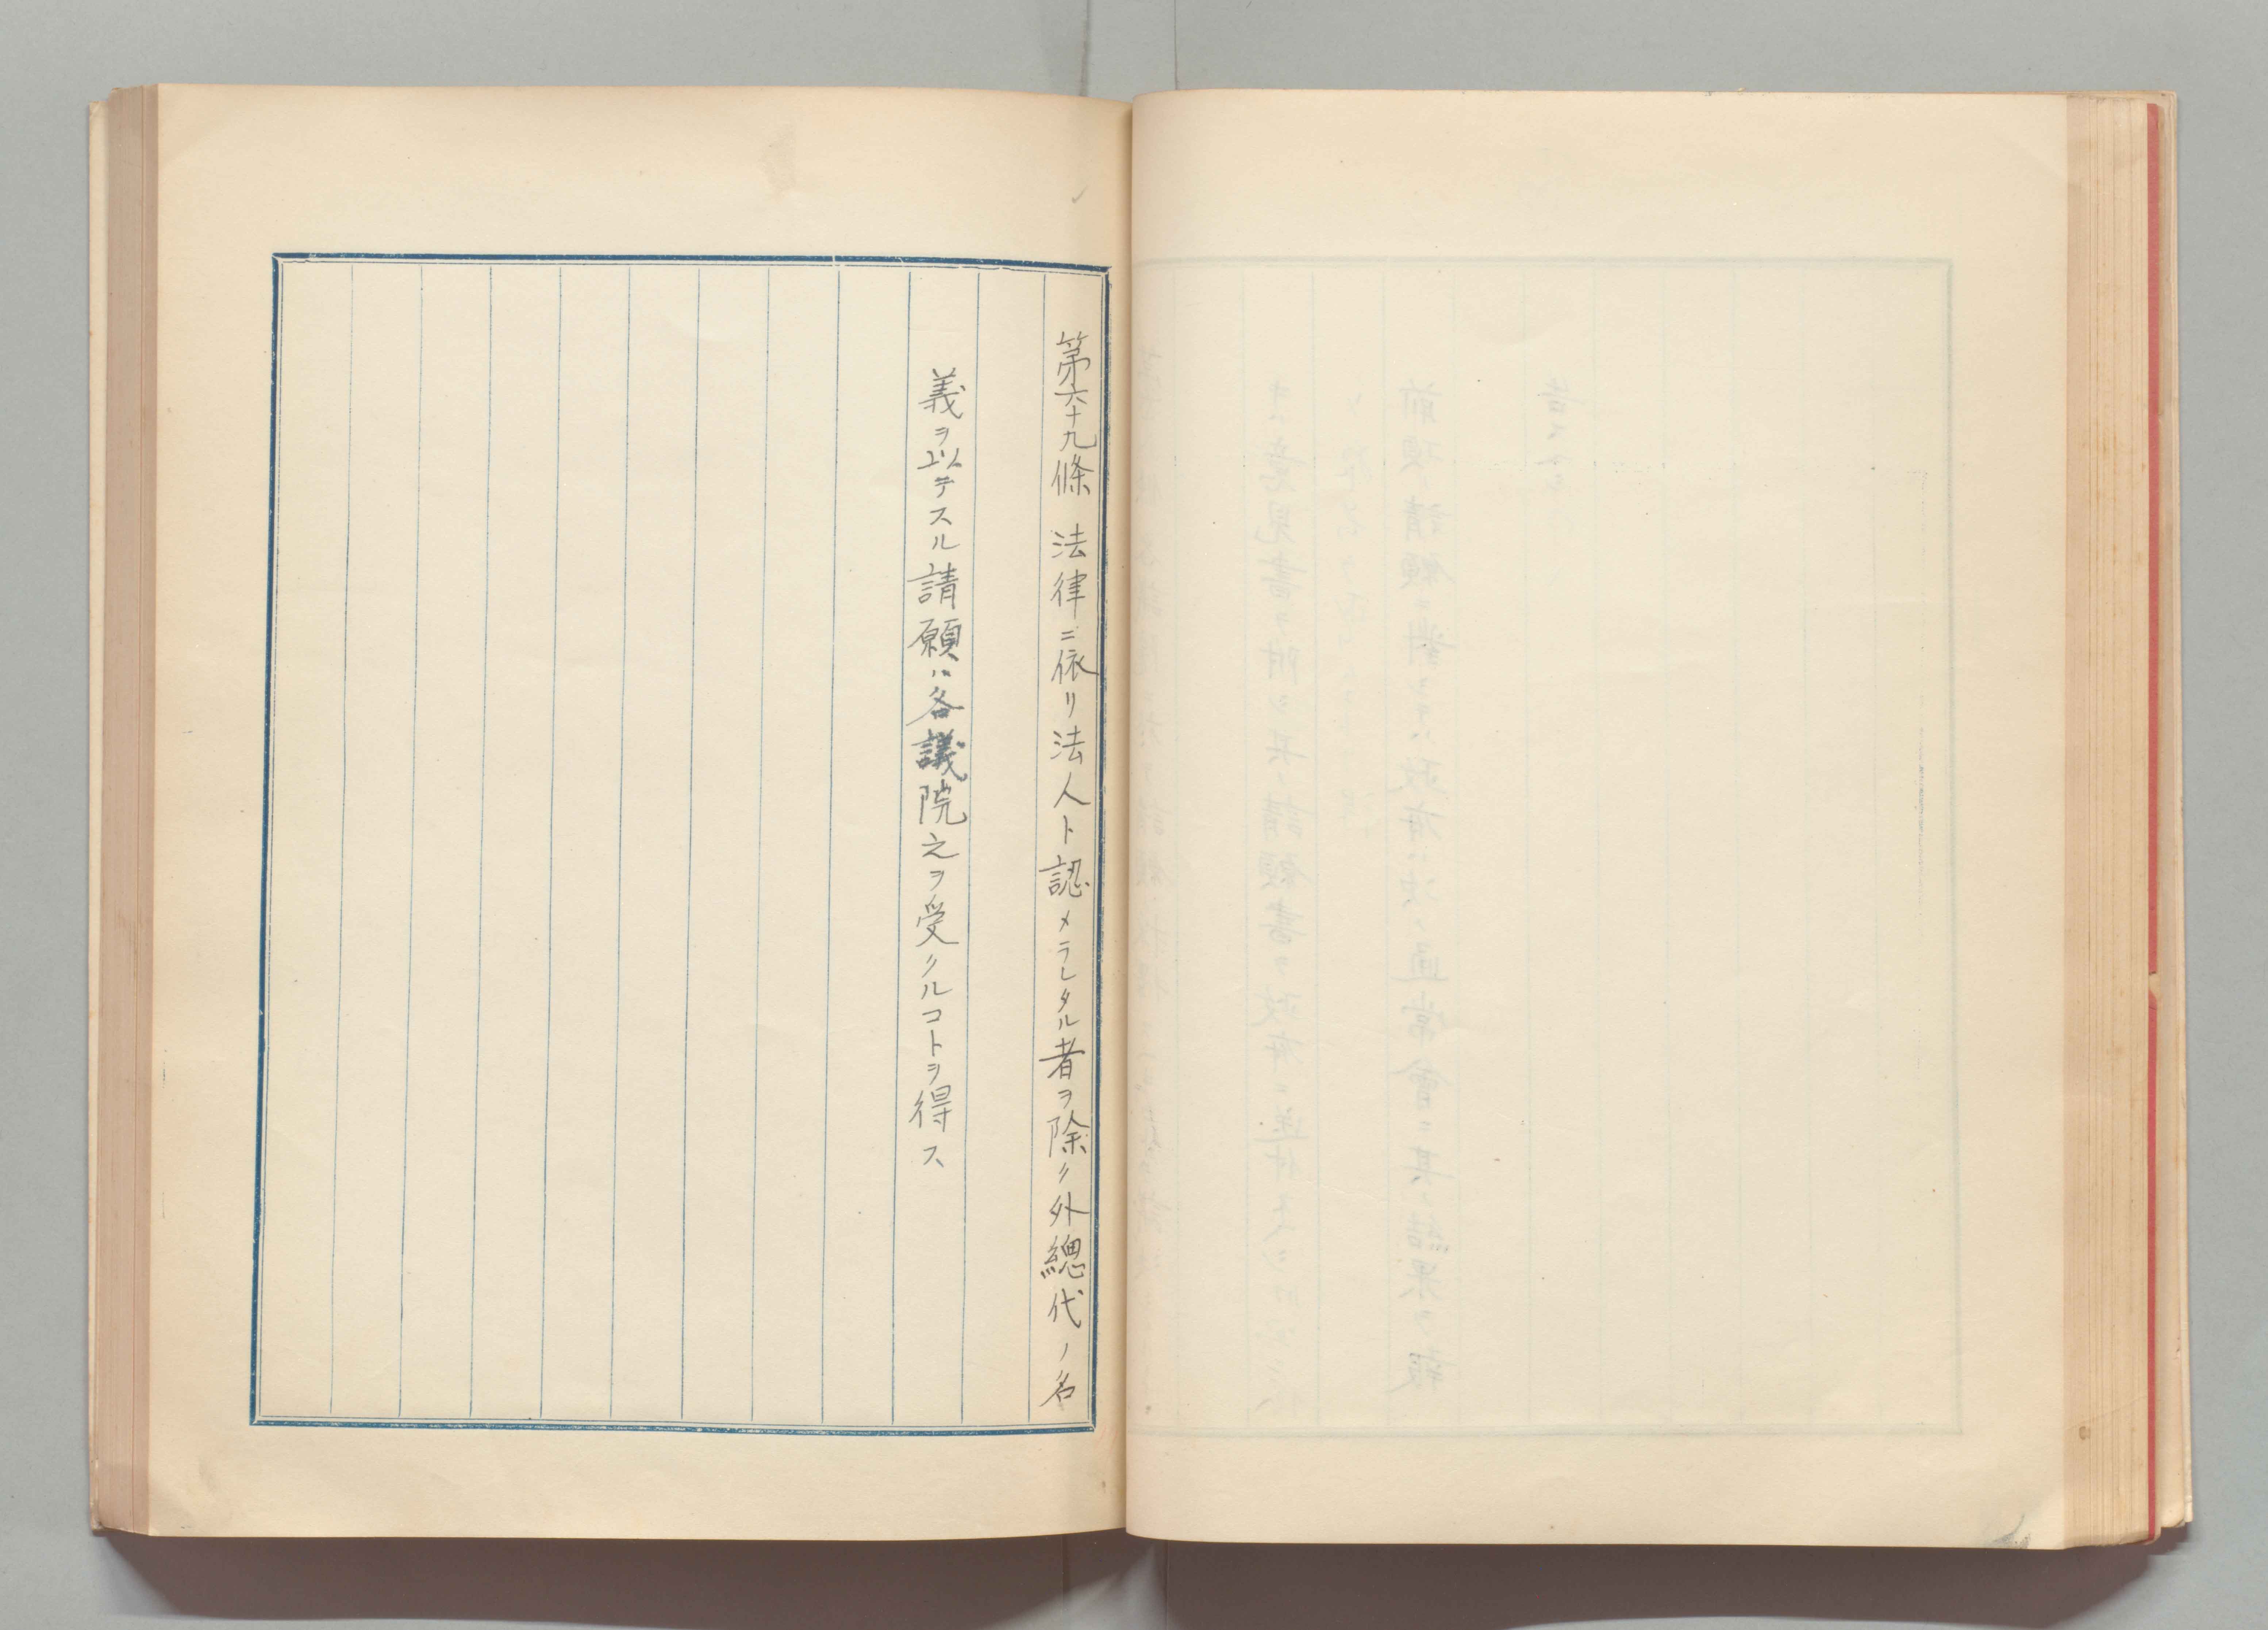 第六十九條 法律ニ依リ法人ト認メラレタル者ヲ除ク外總代ノ名
義ヲ以テスル請願ハ各議院之ヲ受クルコトヲ得ス